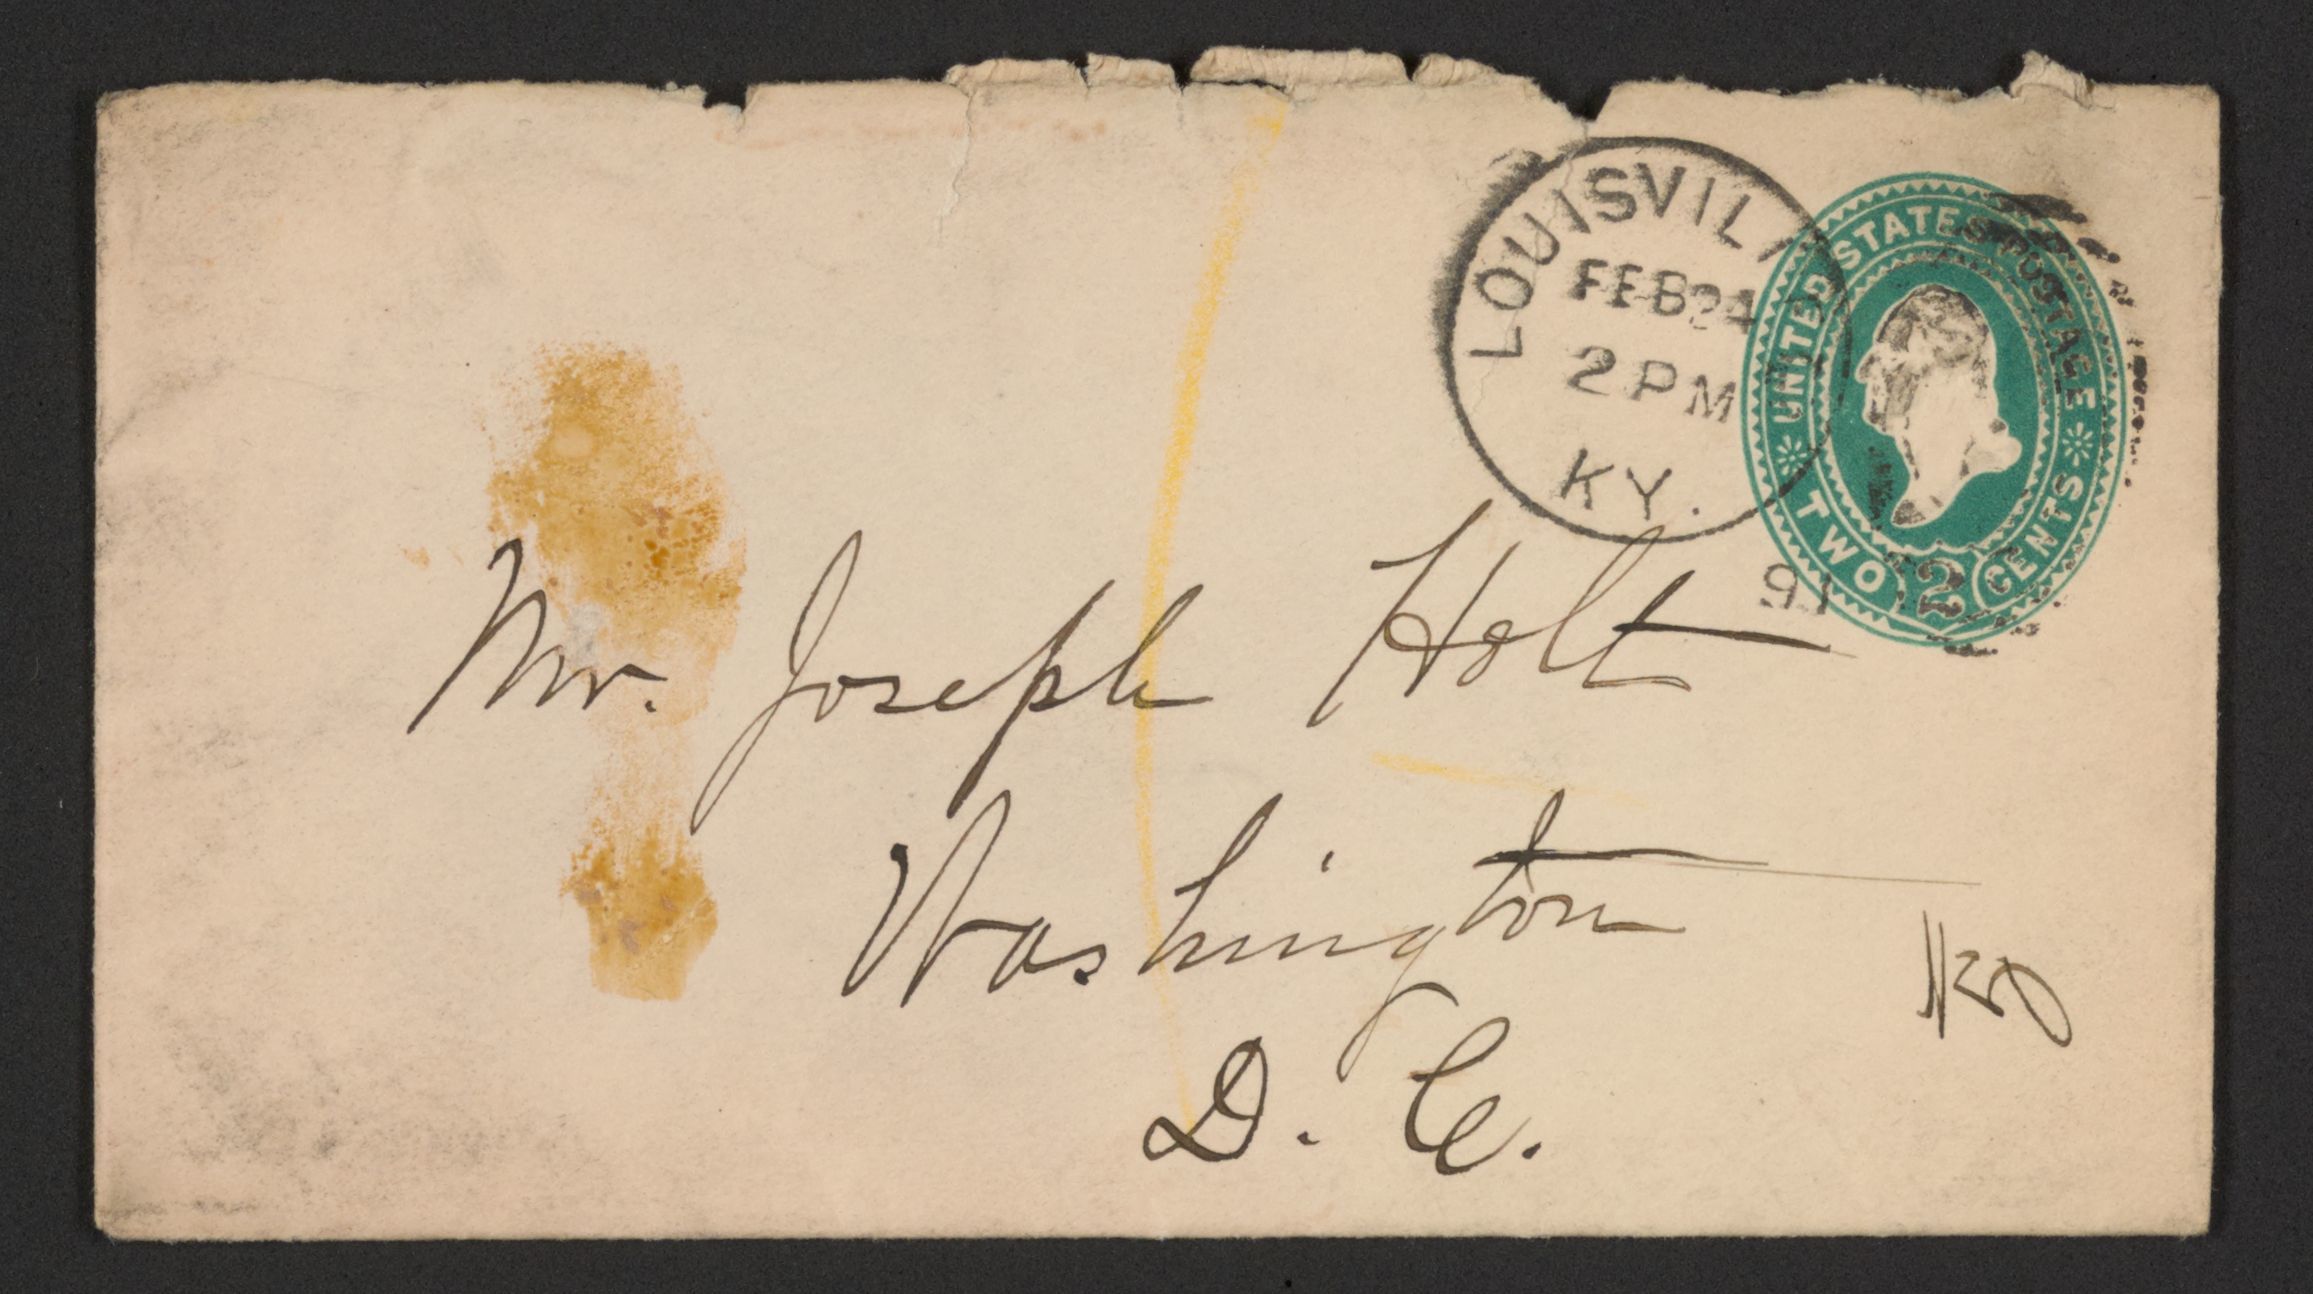 LOUISVILL
FEB 24
2 PM
KY.
91
UNITED STATES POSTAGE
TWO 2 CENTS
Mr. Joseph Holt
Washington
D. C.